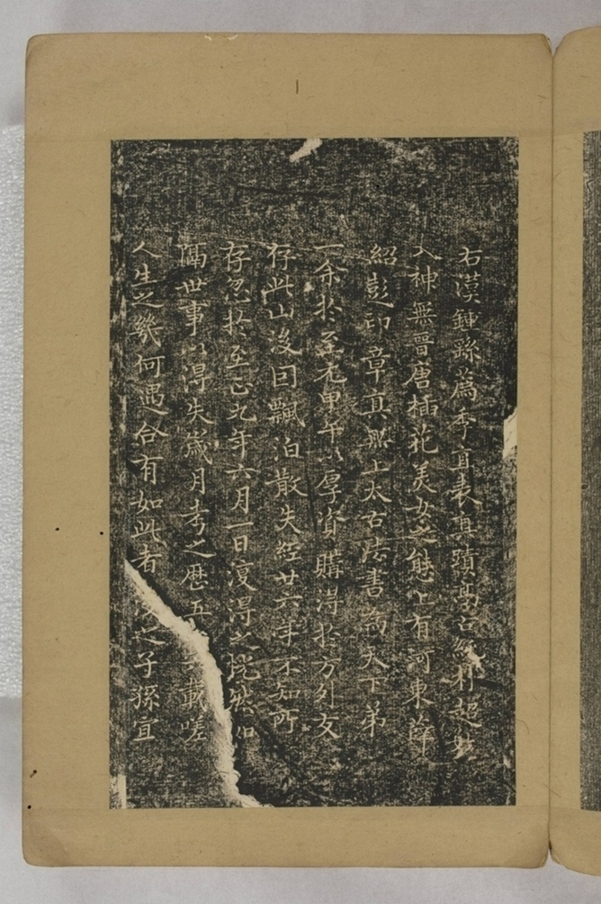 右漢鍾繇薦季直表真蹟高古純朴超妙
入神無晉唐插花美女之態上有河東薛
紹彭印章真無上太古法書為天下弟
一余於至元甲午以厚資購得於方外友
存此山後因飄泊散失經廿六年不知所
存忽於至正九年六月一日復得之恍然如
隔世事以得失歲月考之歷五載嗟
人生之幾何遇合有如此者之子孫宜